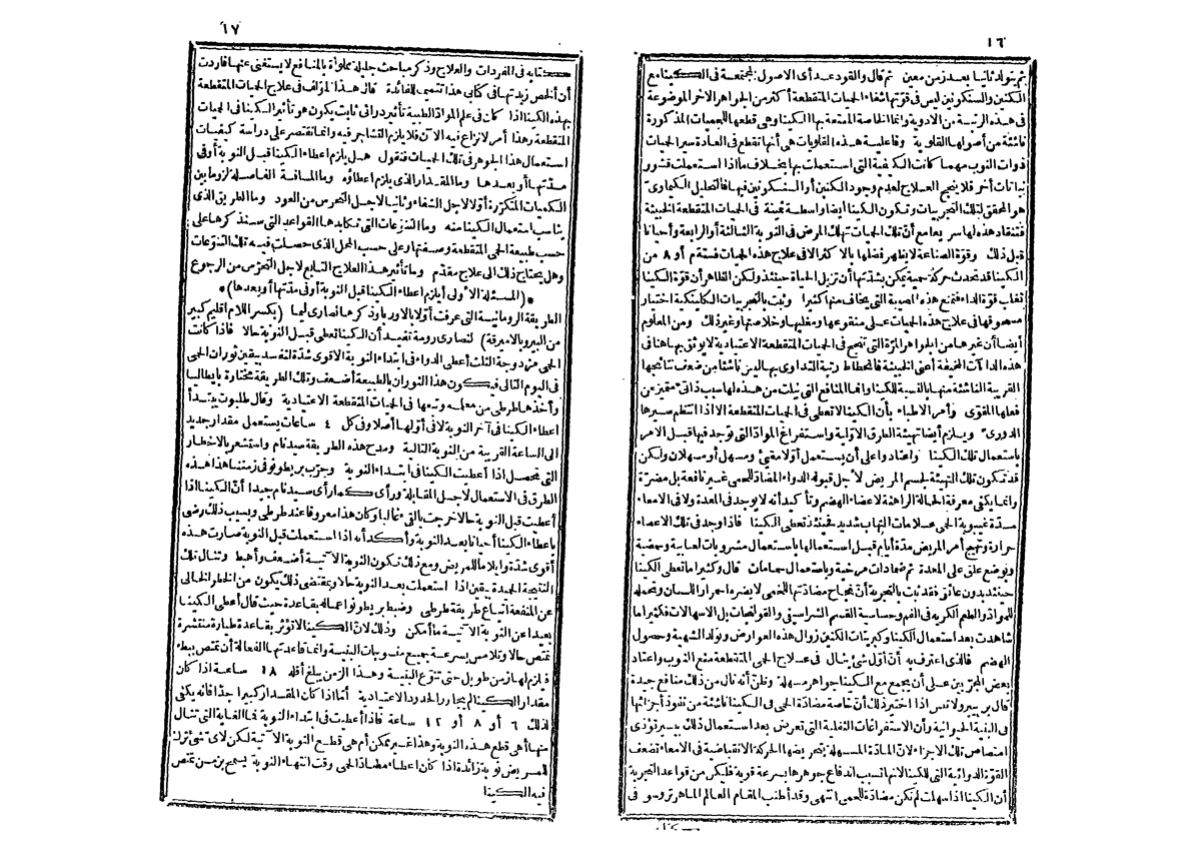 ١٦
ثم يتولد ثانيا بعد زمن معين ثم قال والقود عد أى الاصول المجتمعة فى الكينا مع
الكنين والسنكونين ليس فى قوتها شفاء الحميات المتقطعة أكثر من الجواهر الاخر الموضوعة
فى هذه الرتبة من الادوية وانما الخاصة الممتعة بها الكينا وهى قطعها للحميات المذكورة
ناشئة من أصولها القلوية وفاعلية هذه القلويات هى أنها تقطع فى العادة سير الحميات
ذوات النوب مهما كانت الكيفية التى استعملت بها بخلاف ما اذا استعملت قشور
نباتات أخر فلا ينجح العلاج لعدم وجود الكنين أو السنكونين فيها فالتحليل الكيماوى
هو المحقق لتلك التجربيات وتكون الكينا أيضا واسطة ثمينة فى الحميات المتقطعة الخبيثة
فتنقاد هذه لها سريعا مع أن تلك الحميات تهلك المرضى فى النوبة الثالثة أو الرابعة وأحيانا
قبل ذلك وقوة الصناعة لا يظهر فضلها بالاكثر الا فى علاج هذه الحميات فستة م أو ٨ من
الكينا قد تحدث حركة حمية يمكن بشدتها أن تزيل الحياة حينئذ ولكن الظاهر أن قوة الكينا
تغلب قوة الداء فتمنع هذه المصيبة التى يخاف منها كثيرا وثبت بالتجربيات الكلينيكية اختيار
مسحوقها فى علاج هذه الحميات على منقوعها ومغليها وخلاصتها وغير ذلك ومن المعلوم
أيضا أن غيرها من الجواهر المرة التى تنجح فى الحميات المتقطعة الاعتيادية لا يوثق بها هنا فى
هذه الداآت المخيفة أعنى الخبيثة فانحطاط رتبة التداوى بها ليس ناشئا من ضعف نتائجها
القريبة الناشئة منها بالنسبة للكينا وانما المنافع التى نيلت من هذه لها سبب ذاتى متميز من
فعلها المقوى وأمر الاطباء بأن الكينا لا تعطى فى الحميات المتقطعة الا اذا انتظم سيرها
الدورى ويلزم أيضا تهيئة الطرق الاولية واستفراغ المواد التى توجد فيها قبل الامر
باستعمال تلك الكينا واعتادوا على أن يستعمل أولا مقيئ ومسهل أو مسهلان ولكن
قد تكون تلك التهيئة لجسم المريض لاجل قبوله الدواء المضاد للحمى غير نافعة بل مضرة
وانما يكفى معرفة الحالة الراهنة لاعضاء الهضم وتأكيد أنه لا يوجد فى المعدة ولا فى الامعاء
مدة غيبوبة الحمى علامات التهاب شديد فحينئذ تعطى الكينا فاذا وجد فى تلك الاعضاء
حرارة وتهيج أمر المريض مدة أيام قبل استعمالها باستعمال مشروبات لعابية وحمضية
وبوضع علق على المعدة ثم ضمادات مرخية وباستعمال حمامات قال وكثيرا ما تعطى الكينا
حينئذ بدون عائق فقد ثبت بالتجربة أن نجاح مضادتها للحمى لا يضره احمرار اللسان وتحمله
للمواد والطعم الكريه فى الفم وحساسية القسم الشراسيفى والقولنجات بل الاسهالات فكثيرا ما
شاهدت بعد استعمال الكينا وكبريتات الكنين زوال هذه العوارض وتولد الشهية وحصول
الهضم فالذى اعترف به أن أول شئ ينال فى علاج الحمى المتقطعة منع النوب واعتاد
بعض المجربين على أن يجمع مع الكينا جواهر مسهلة وظن أنه نال من ذلك منافع جيدة
قال بربيير ولا تس اذا اختير ذلك أن خاصة مضادة الحمى فى الكينا ناشئة من نفوذ أجزائها
فى البنية الحيوانية وأن الاستفراغات الثفلية التى تعرض بعد استعمال ذلك بيسير تؤذى
امتصاص تلك الاجزاء لان المادة المسهلة بتحريضها الحركة الانقباضية فى الامعاء تضعف
القوة الدوائية التى للكينا لانها تسبب اندفاع جوهرها بسرعة قوية فليكن من قواعد التجربة
أن الكينا اذا سهلت لم تكن مضادة للحمى انتهى وقد أطنب المقام العالم الماهر تروسو فى
كتابه
١٧
كتابه فى المفردات والعلاج وذكر مباحث جليلة مملوأة بالمنافع لا يستغنى عنها فأردت
أن ألخص زبدتها فى كتابى هذا تتميما للفائدة قال هذا المؤلف فى علاج الحميات المتقطعة
بهذه الكينا اذا كان فى علم المواد الطبية تأثير دوائى ثابت يكون هو تأثير الكينا فى الحميات
المتقطعة وهذا أمر لا نزاع فيه الآن فلا يلزم التشاجر فيه وانما نقتصر على دراسة كيفيات
استعمال هذا الجوهر فى تلك الحميات فنقول هل يلزم اعطاء الكينا قبل النوبة أو فى
مدتها أو بعدها وما المقدار الذى يلزم اعطاؤه وما المسافة الفاصلة لزوما بين
الكميات المتكررة أولا لاجل الشفاء وثانيا لاجل التحرس من العود وما الطريق الذى
يناسب استعمال الكينا منه وما التنوعات التى تكابدها القواعد التى سنذكرها على
حسب طبيعة الحمى المتقطعة وصفتها وعلى حسب المحل الذى حصلت فيه تلك التنوعات
وهل يحتاج ذلك الى علاج مقدم وما تأثير هذا العلاج التابع لاجل التحرس من الرجوع
*(المسئلة الاولى أيلزم اعطاء الكينا قبل النوبة أو فى مدتها أو بعدها)*
الطريقة الرومانيسة التى عرفت أولا بالاوربا وذكرها نصارى ليما (بكسر اللام اقليم كبير
من البيرو بالاميرقة) لنصارى رومة تفيد أن الكينا تعطى قبل النوبة حالا فاذا كانت
الحمى مزدوجة الثلث أعطى الدواء فى ابتداء النوبة الاقوى شدة لتفسد بيقين ثورات الحمى
فى اليوم التالى فيكون هذا الثوران بالطبيعة أضعف وتلك الطريقة مختارة بايطاليا
وأخذها طرطى من معلمه وتبعها فى الحميات المتقطعة الاعتيادية وقال طلبوت يبتدأ
اعطاء الكينا فى آخر النوبة لا فى أولها أصلا وفى كل ٤ ساعات يستعمل مقدار جديد
الى الساعة القريبة من النوبة التالية ومدح هذه الطريقة سيدنام واستشعر بالاخطار
التى تحصل اذا أعطيت الكينا فى ابتداء النوبة وجرب بريطونو فى زمننا هذا هذه
الطرق فى الاستعمال لاجل المقابلة ورأى كما رأى سيدنام جيدا أن الكينا اذا
أعطيت قبل النوبة حالا خرجت بالقئ غالبا وكان هذا معروفا عند طرطى وبسبب ذلك رضى
باعطاء الكينا أحيانا بعد النوبة وأكد أنه اذا استعملت قبل النوبة صارت هذه
أقوى شدة وايلاما للمريض ومع ذلك تكون النوبة الآتية أضعف وأهبط وتنال تلك
النتيجة الجيدة بيقين اذا استعملت بعد النوبة حالا وبمقتضى ذلك يكون من الخطر الخالى
عن المنفعة اتباع طريقة طرطى وضبط بريطونو اعماله بقاعدة حيث قال أعطى الكينا
بعيدا عن النوبة الآتية ما أمكن وذلك لان الكينا لا تؤثر بقاعدة طيارة منتشرة
تمتص حالا وتلامس بسرعة جميع منسوجات البنية وانما قاعدتها الفعالة أن تمتص ببطء
فيلزم لها زمن طويل حتى تتنوع البنية وهذا الزمن يبلغ أقله ١٨ ساعة اذا كان
مقدار الكينا لم يجاوز الحدود الاعتيادية أما اذا كان المقدار كبيرا جدا فانه يكفى
لذلك ٦ أو ٨ أو ١٢ ساعة فاذا أعطيت فى ابتداء النوبة فما الغاية التى تنال
منها أهى قطع هذه النوبة وهذا غير ممكن أم هى قطع النوبة الآتية لكن لاى شئ تترك
للمريض نوبة زائدة اذا كان اعطاء مضاد الحمى وقت انتهاء النوبة يسمح بزمن تمتص
فيه الكينا